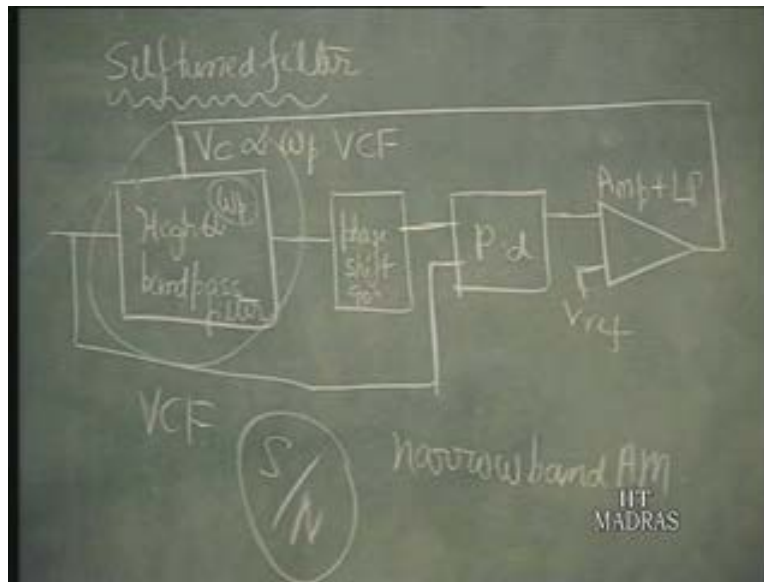 Self tuned filter
Vc ∝ ωp VCF
Amp + LP
High Q ωp
bandpass
filter
phase
shift
90°
P.d
Vref
VCF
S/N
narrowband AM
IIT
MADRAS